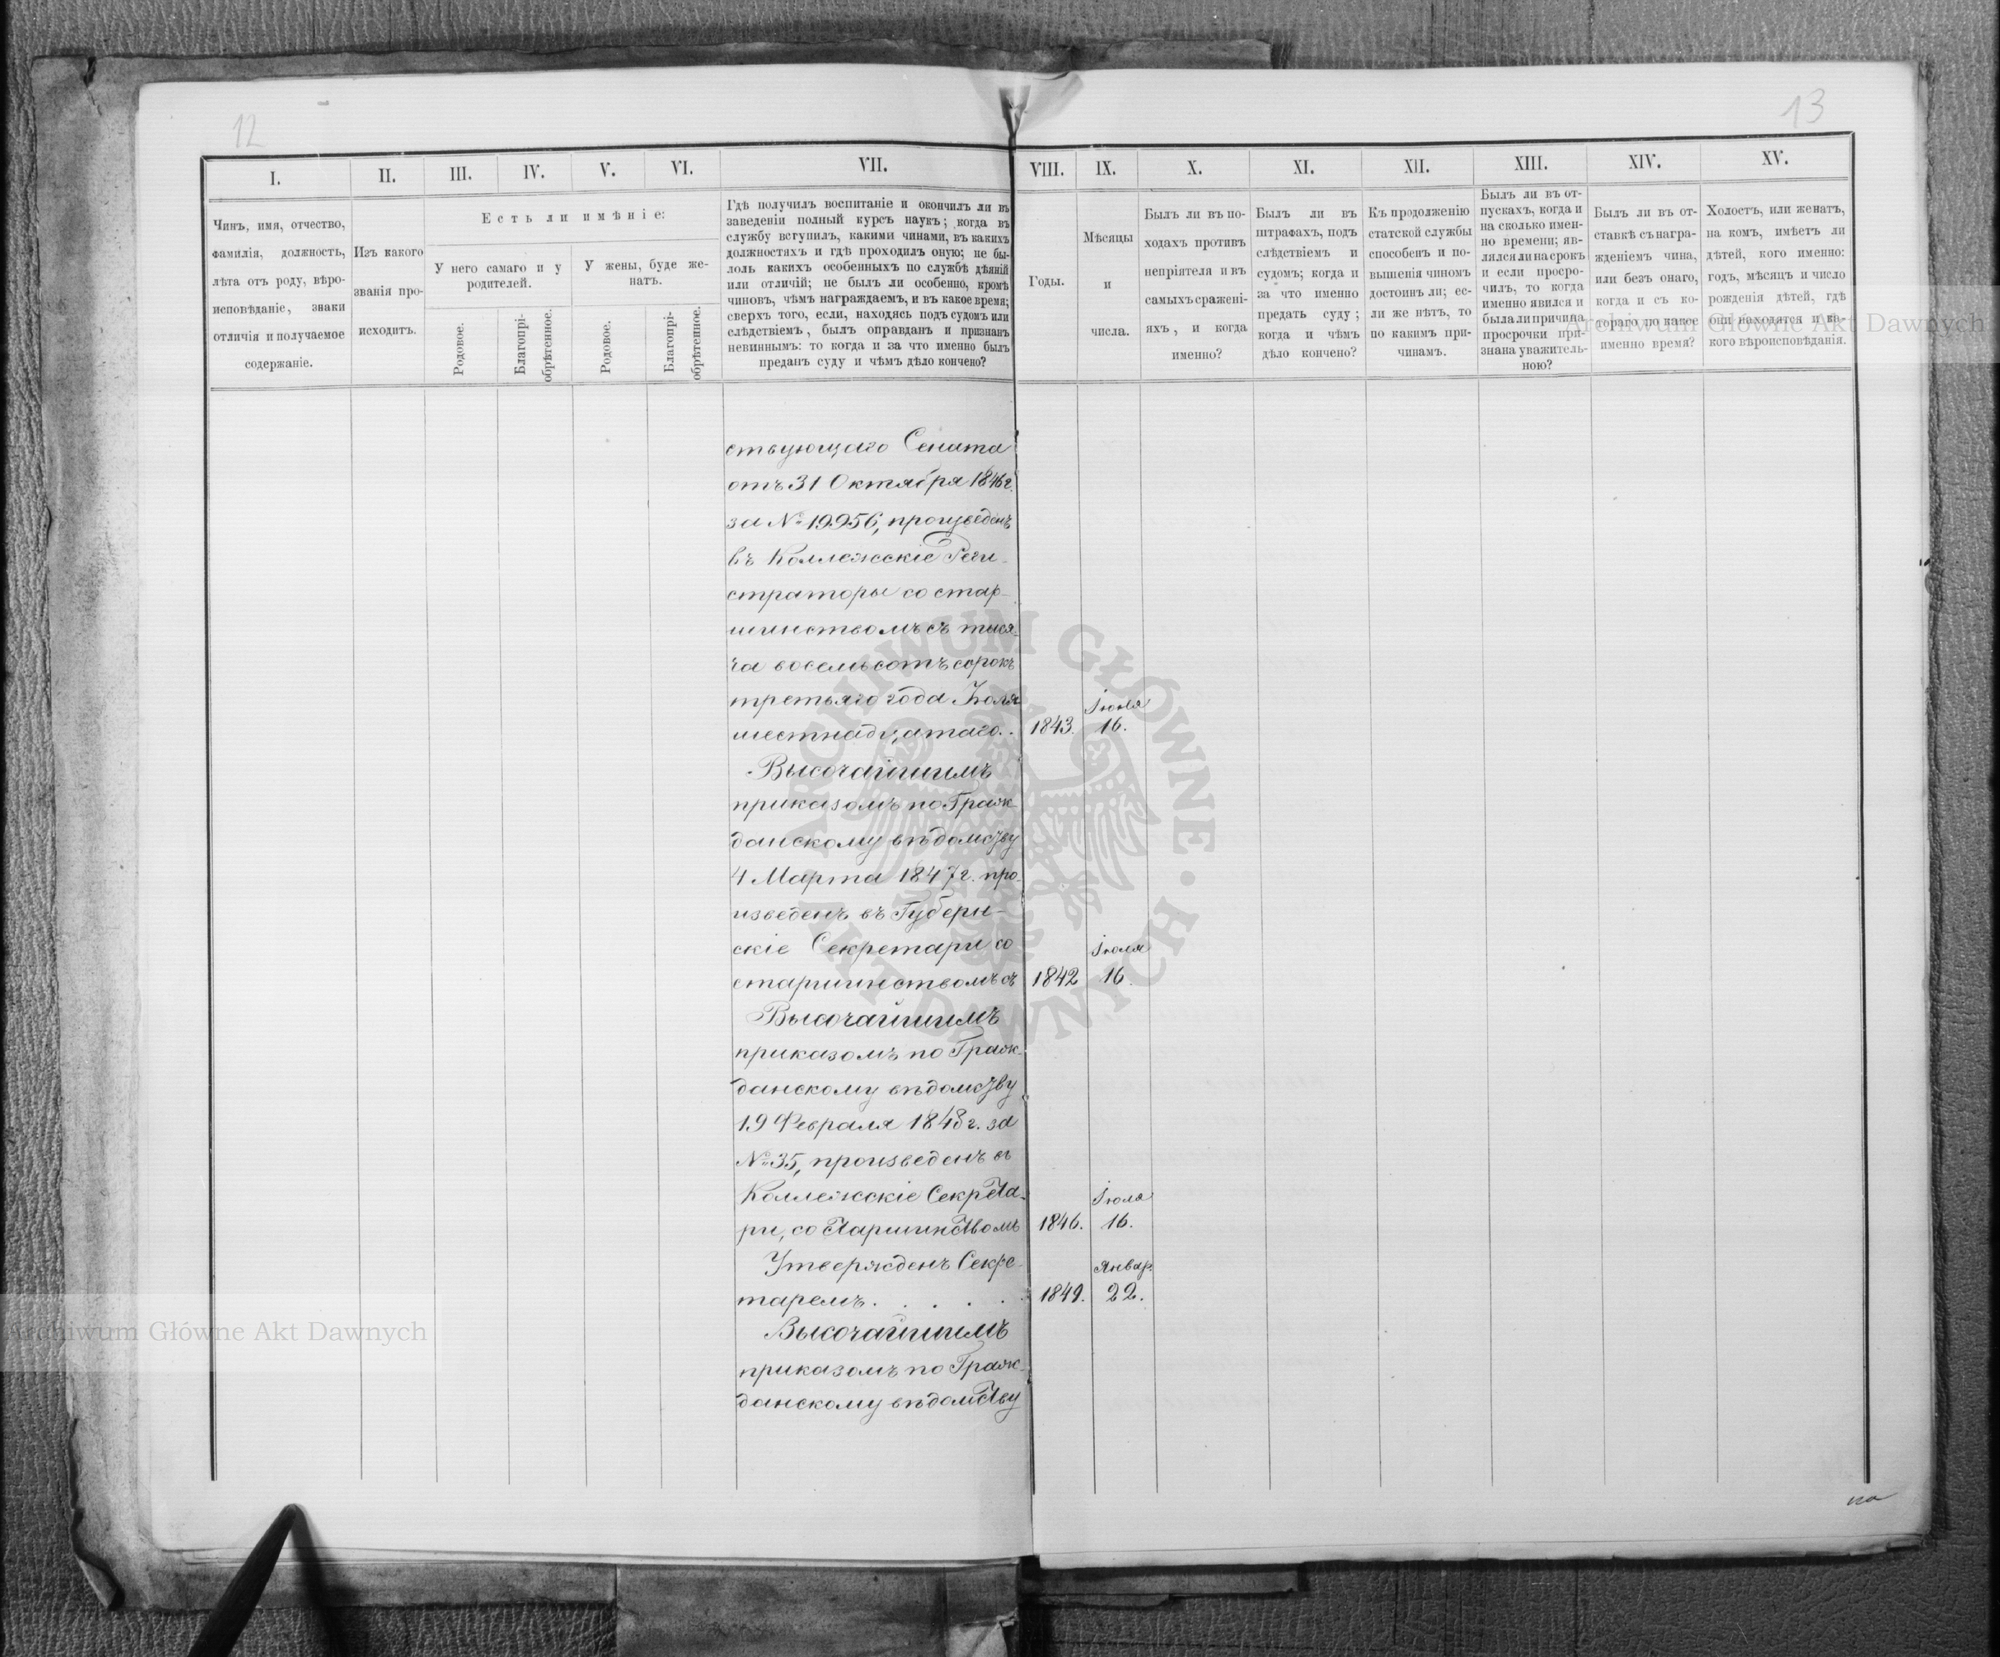 12
13
I.
II.
III.
IV.
V.
VI.
VII.
VIII.
IX.
X.
XI.
XII.
XIII.
XIV.
XV.
Чинъ, имя, отчество,
фамилія, должность,
лѣта отъ роду, вѣро-
исповѣданіе, знаки
отличія и получаемое
содержаніе.
Изъ какого
званія про-
исходитъ.
Есть ли имѣніе:
У него самаго и у
родителей.
У жены, буде же-
натъ.
Родовое.
Благопрі-
обрѣтенное.
Родовое.
Благопрі-
обрѣтенное.
Гдѣ получилъ воспитаніе и окончилъ ли въ
заведеніи полный курсъ наукъ; когда въ
службу вступилъ, какими чинами, въ какихъ
должностяхъ и гдѣ проходилъ оную; не бы-
лоль какихъ особенныхъ по службѣ дѣяній
или отличій; не былъ ли особенно, кромѣ
чиновъ, чѣмъ награждаемъ, и въ какое время;
сверхъ того, если, находясь подъ судомъ или
слѣдствіемъ, былъ оправданъ и признанъ
невиннымъ: то когда и за что именно былъ
преданъ суду и чѣмъ дѣло кончено?
Годы.
Мѣсяцы
и
числа.
Былъ ли въ по-
ходахъ противъ
непріятеля и въ
самыхъ сражені-
яхъ, и когда
именно?
Былъ ли въ
штрафахъ, подъ
слѣдствіемъ и
судомъ; когда и
за что именно
преданъ суду;
когда и чѣмъ
дѣло кончено?
Къ продолженію
статской службы
способенъ и по-
вышенія чиномъ
достоинъ ли; ес-
ли же нѣтъ, то
по какимъ при-
чинамъ.
Былъ ли въ от-
пускахъ, когда и
на сколько имен-
но времени; яв-
лялся ли на срокъ
и если просро-
чилъ, то когда
именно явился и
была ли причина
просрочки при-
знана уважитель-
ною?
Былъ ли въ от-
ставкѣ съ награ-
жденіемъ чина,
или безъ онаго,
когда и съ ко-
тораго по какое
именно время?
Холостъ, или женатъ,
на комъ, имѣетъ ли
дѣтей, кого именно:
годъ, мѣсяцъ и число
рожденія дѣтей, гдѣ
они находятся и ка-
кого вѣроисповѣданія.
ствующаго Сената
отъ 31 Октября 1846 г.
за № 19956, произведенъ
въ Коллежскіе Реги-
страторы со стар-
шинствомъ съ тыся-
ча восемьсотъ сорокъ
третьяго года Іюля
шестнадцатаго. .
1843.
Іюля
16.
Высочайшимъ
приказомъ по Граж-
данскому вѣдомству
4 Марта 1847 г. про-
изведенъ въ Губерн-
скіе Секретари со
старшинствомъ съ
1842
Іюля
16.
Высочайшимъ
приказомъ по Граж-
данскому вѣдомству
19 Февраля 1848 г. за
№ 35, произведенъ въ
Коллежскіе Секрета-
ри, со старшинствомъ
1846.
Іюля
16.
Утвержденъ Секре-
таремъ. . . . .
1849.
Январ.
22.
Высочайшимъ
приказомъ по Граж-
данскому вѣдомству
Archiwum Główne Akt Dawnych
Archiwum Główne Akt Dawnych
ARCHIWUM GŁÓWNE AKT DAWNYCH